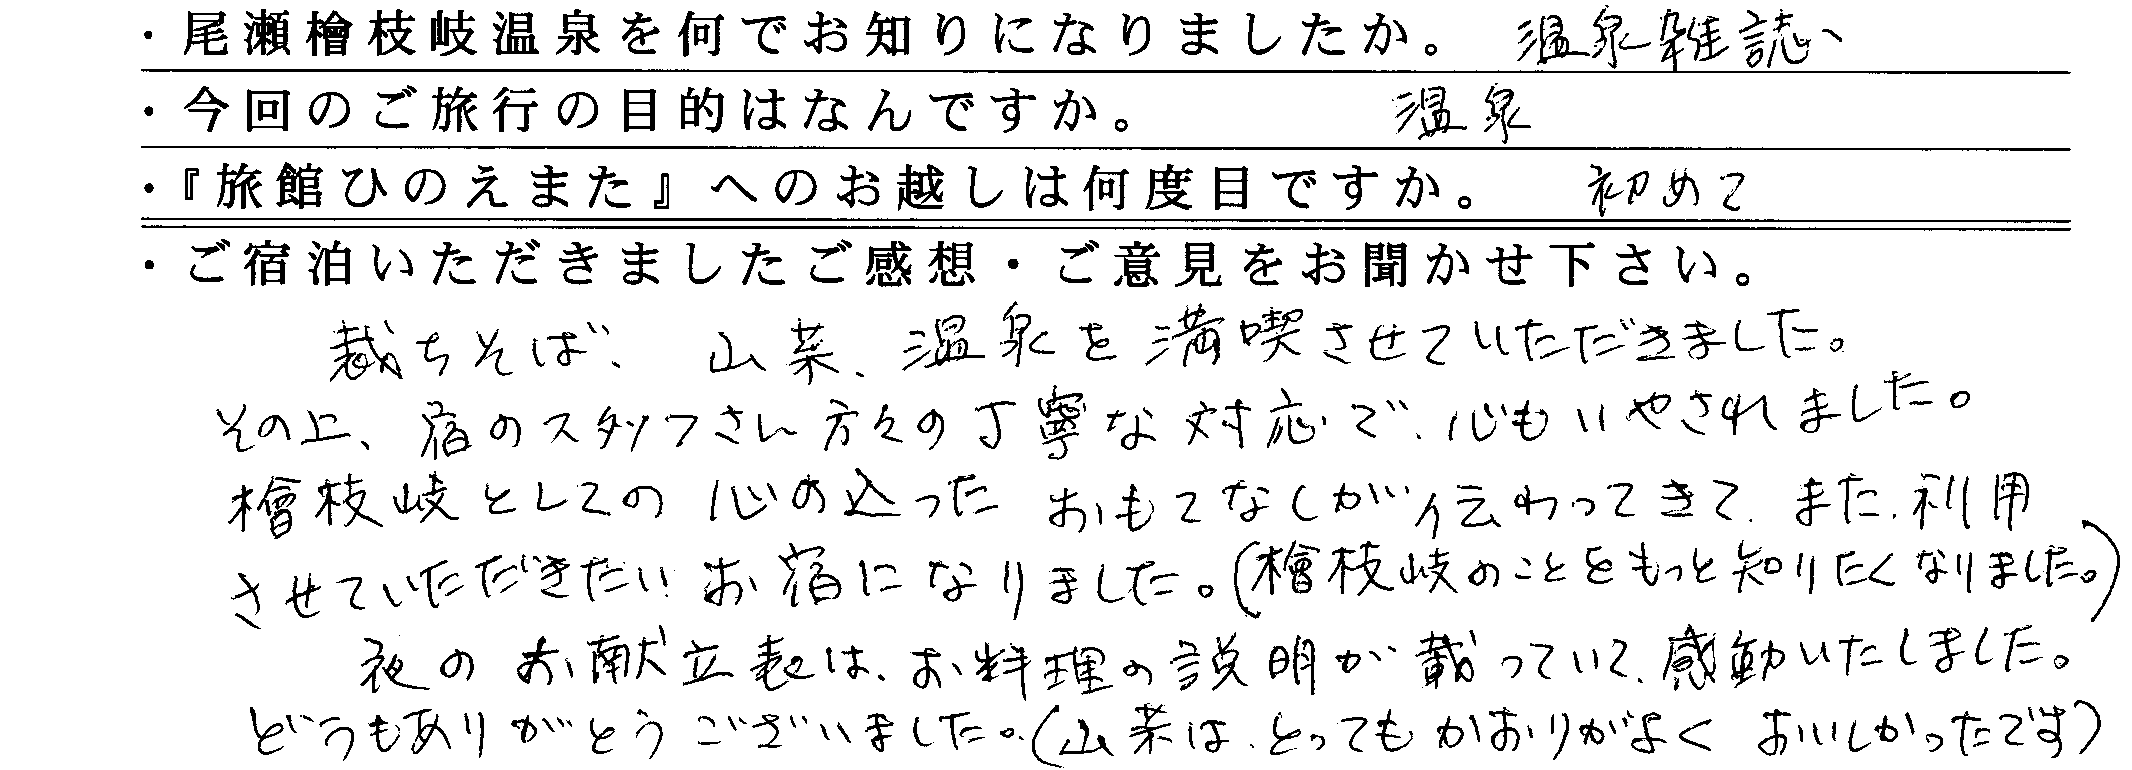 ・尾瀬檜枝岐温泉を何でお知りになりましたか。 温泉雑誌、
・今回のご旅行の目的はなんですか。 温泉
・『旅館ひのえまた』へのお越しは何度目ですか。 初めて
・ご宿泊いただきましたご感想・ご意見をお聞かせ下さい。
裁ちそば、山菜、温泉を満喫させていただきました。
その上、宿のスタッフさん方々の丁寧な対応で、心もいやされました。
檜枝岐としての心の込ったおもてなしが伝わってきて、また、利用
させていただきたいお宿になりました。(檜枝岐のことをもっと知りたくなりました。)
夜のお献立表は、お料理の説明が載っていて、感動いたしました。
どうもありがとうございました。(山菜は、とってもかおりがよくおいしかったです)